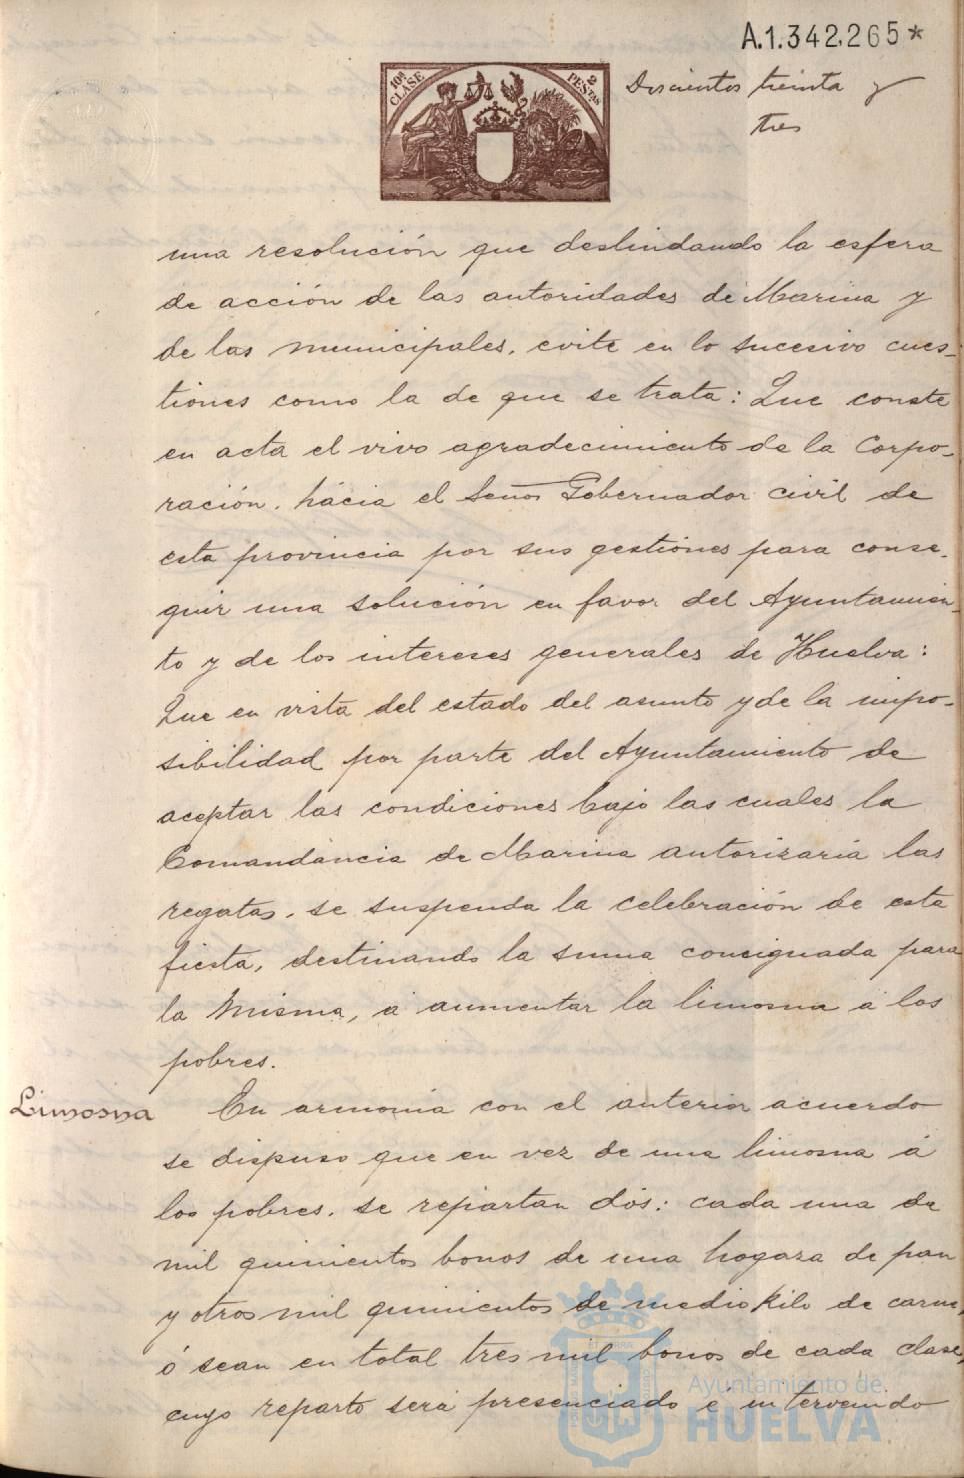 A.1.342,265*
10ª CLASE
2 PESTAS
Doscientos treinta y
tres
una resolución que deslindando la esfera
de acción de las autoridades de Marina y
de las municipales, evite en lo sucesivo cues-
tiones como la de que se trata: Que conste
en acta el vivo agradecimiento de la Corpo-
ración, hácia el Señor Gobernador civil de
esta provincia por sus gestiones para conse-
guir una solución en favor del Ayuntamien-
to y de los intereses generales de Huelva:
Que en vista del estado del asunto y de la impo-
sibilidad por parte del Ayuntamiento de
aceptar las condiciones bajo las cuales la
Comandancia de Marina autorizaria las
regatas, se suspenda la celebración de esta
fiesta, destinando la suma consignada para
la misma, a aumentar la limosna a los
pobres.
Limosna
En armonia con el anterior acuerdo
se dispuso que en vez de una limosna á
los pobres, se repartan dos: cada una de
mil quinientos bonos de una hogaza de pan
y otros mil quinientos de medio kilo de carne,
ó sean en total tres mil bonos de cada clase,
cuyo reparto será presenciado é intervenido
Ayuntamiento de
HUELVA